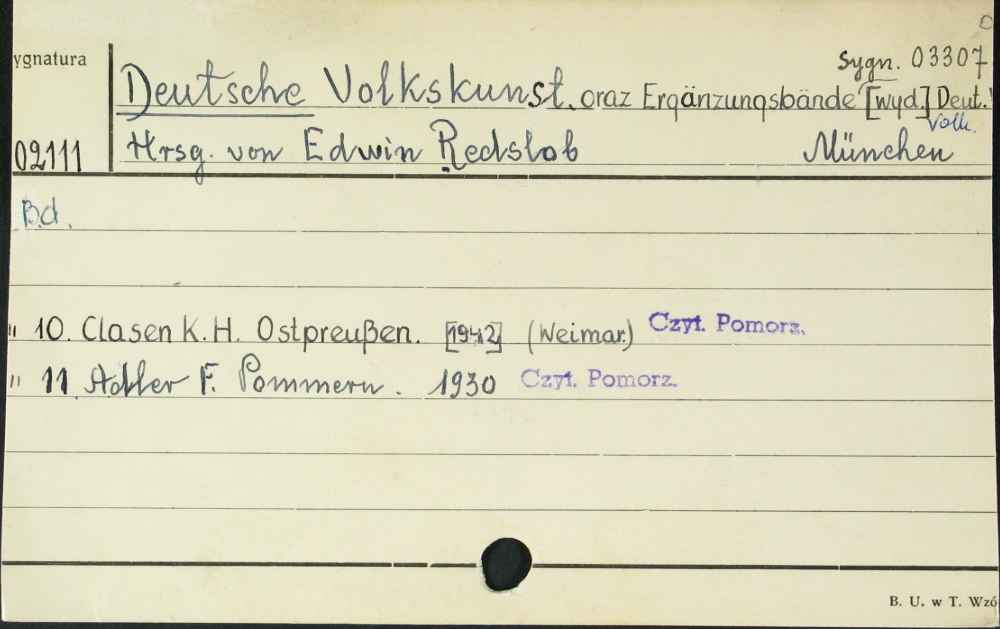 ygnatura
Sygn. 03307
Deutsche Volkskunst, oraz Ergänzungsbände [wyd.] Deut.
Volk.
02111
Hrsg. von Edwin Redslob München
Bd.
" 10. Clasen K. H. Ostpreußen. [1942] (Weimar.) Czyt. Pomorz.
" 11. Adler F. Pommern. 1930 Czyt. Pomorz.
B. U. w T. Wzó